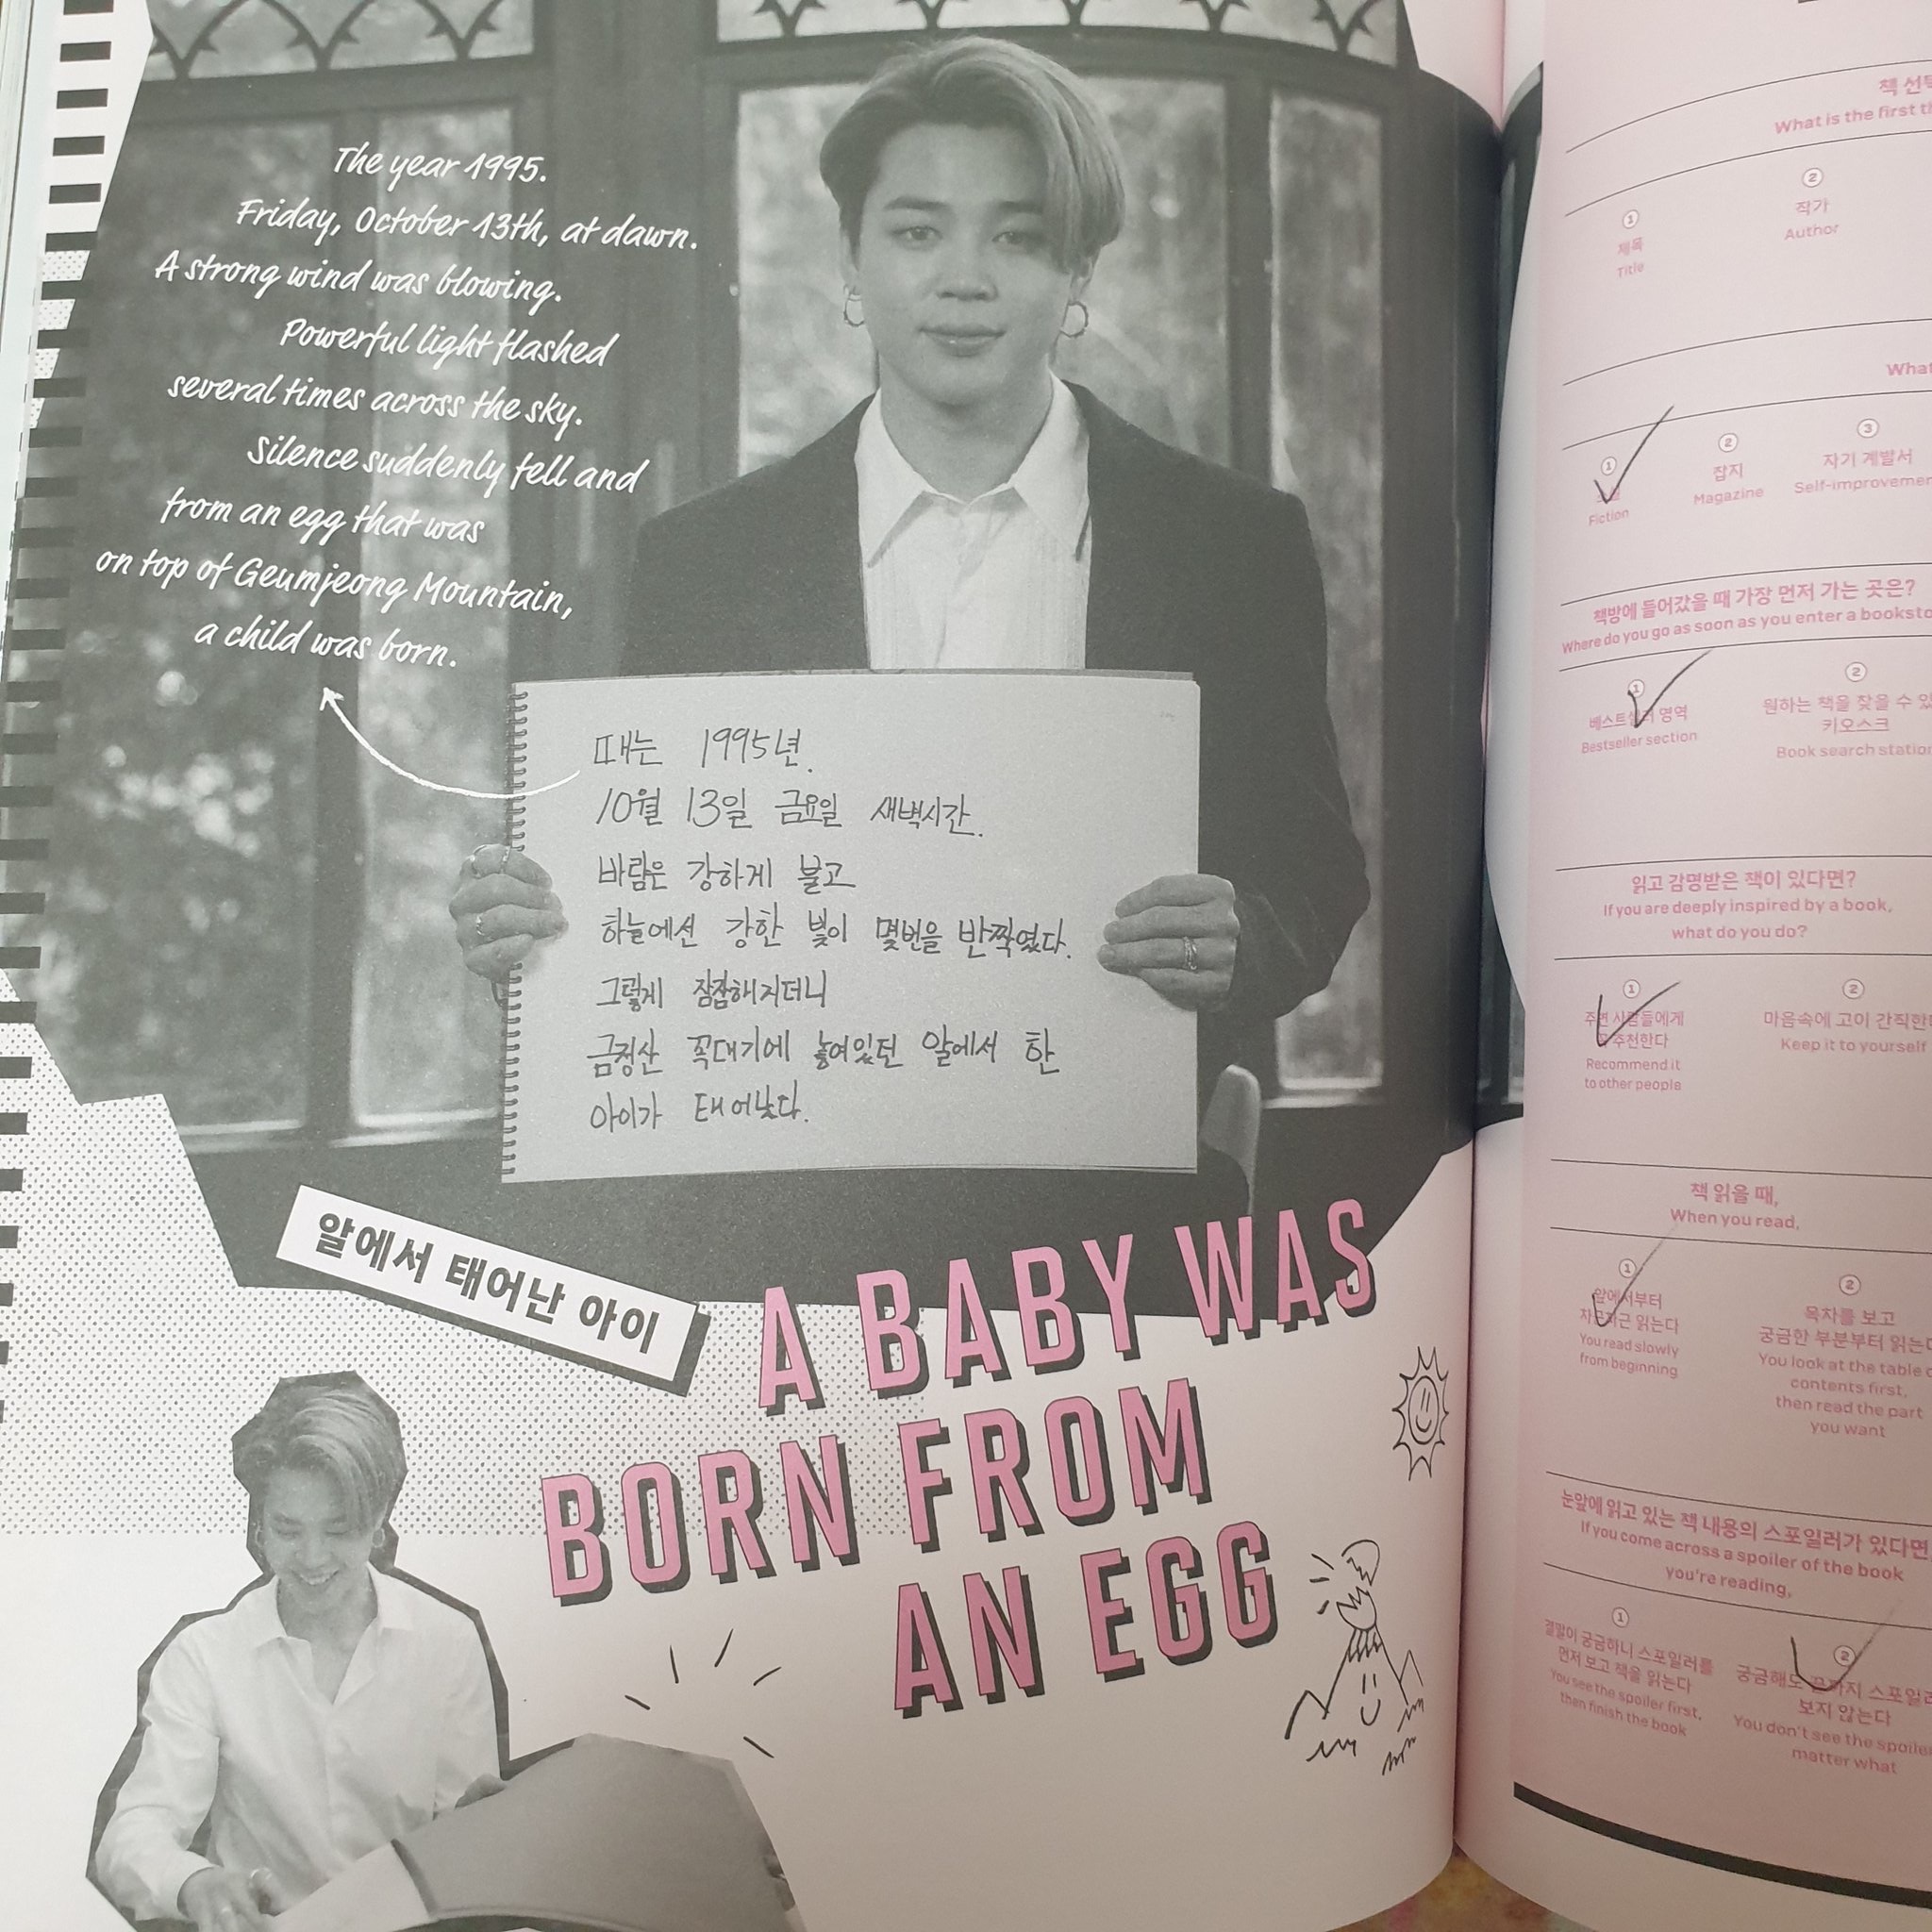 The year 1995.
Friday, October 13th, at dawn.
A strong wind was blowing.
Powerful light flashed
several times across the sky.
Silence suddenly fell and
from an egg that was
on top of Geumjeong Mountain,
a child was born.
때는 1995년.
10월 13일 금요일 새벽시간.
바람은 강하게 불고
하늘에선 강한 빛이 몇번을 반짝였다.
그렇게 잠잠해지더니
금정산 꼭대기에 놓여있던 알에서 한
아이가 태어났다.
알에서 태어난 아이
A BABY WAS
BORN FROM
AN EGG
책 선택
What is the first
①
제목
Title
②
작가
Author
What
①
Fiction
②
잡지
Magazine
③
자기 계발서
Self-improvemen
책방에 들어갔을 때 가장 먼저 가는 곳은?
Where do you go as soon as you enter a booksto
①
베스트셀러 영역
Bestseller section
②
원하는 책을 찾을 수 있
키오스크
Book search station
읽고 감명받은 책이 있다면?
If you are deeply inspired by a book,
what do you do?
①
주변 사람들에게
추천한다
Recommend it
to other people
②
마음속에 고이 간직한
Keep it to yourself
책 읽을 때,
When you read,
①
앞에서부터
차근차근 읽는다
You read slowly
from beginning
②
목차를 보고
궁금한 부분부터 읽는다
You look at the table o
contents first,
then read the part
you want
눈앞에 읽고 있는 책 내용의 스포일러가 있다면,
If you come across a spoiler of the book
you're reading,
①
결말이 궁금하니 스포일러를
먼저 보고 책을 읽는다
You see the spoiler first,
then finish the book
②
궁금해도 끝까지 스포일러
보지 않는다
You don't see the spoiler
matter what